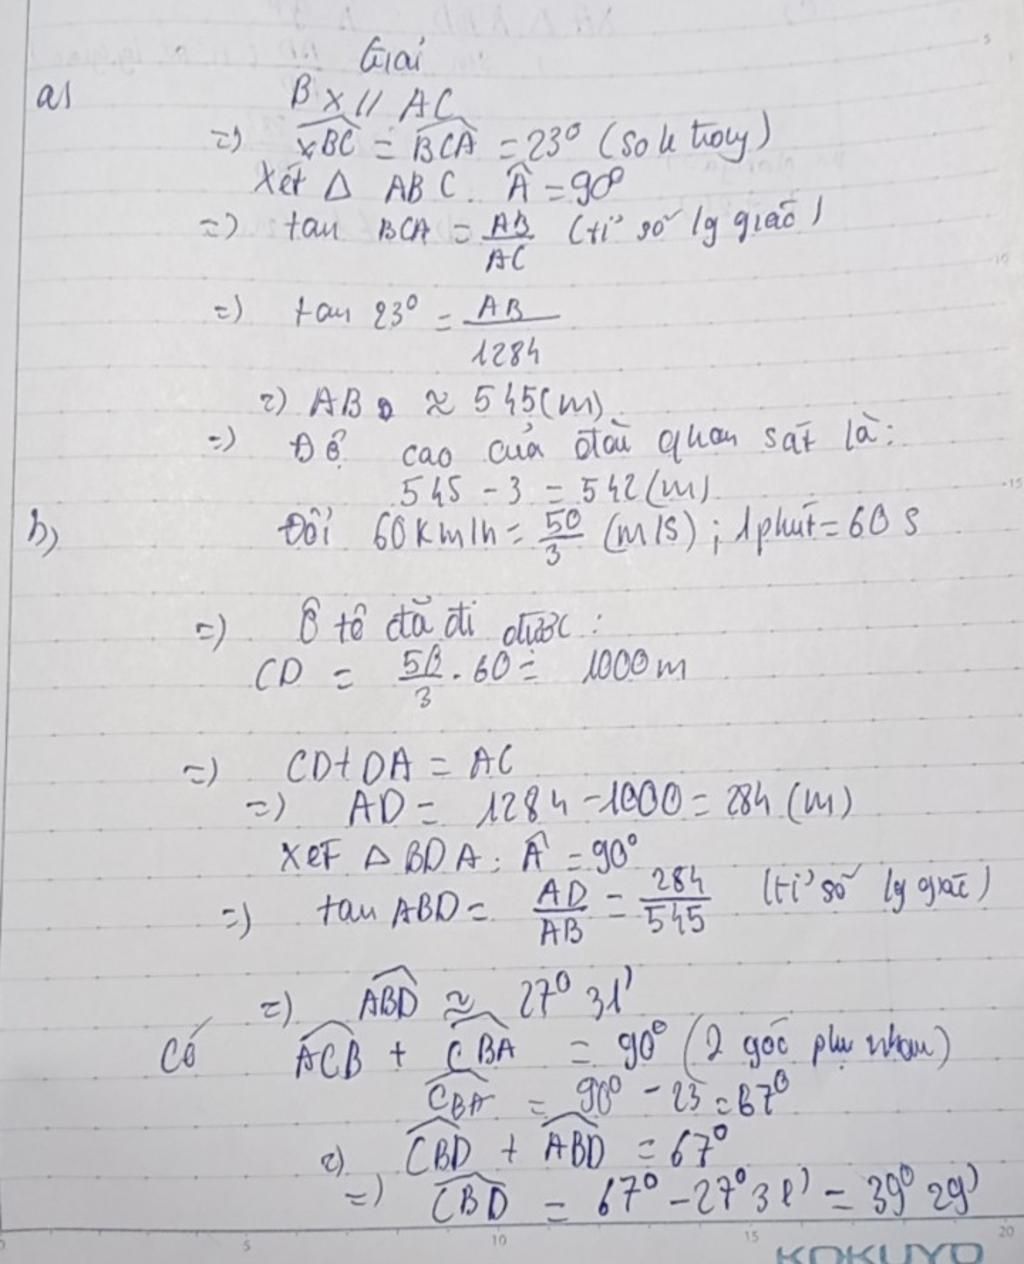 Giải
a) Bx // AC
=) xBC = BCA = 23° (so le trong)
Xét Δ ABC. Â = 90°
=) tan BCA = AB/AC (tỉ số lg giác)
=) tan 23° = AB/1284
=) AB ≈ 545 (m)
=) Độ cao của đài quan sát là:
545 - 3 = 542 (m)
b) Đổi 60 km/h = 50/3 (m/s); 1 phút = 60 s
=) Ô tô đã đi được:
CD = 50/3 . 60 = 1000 m
=) CD + DA = AC
=) AD = 1284 - 1000 = 284 (m)
Xét Δ BDA: Â = 90°
=) tan ABD = AD/AB = 284/545 (tỉ số lg giác)
=) ABD ≈ 27° 31'
Có ACB + CBA = 90° (2 góc phụ nhau)
CBA = 90° - 23 = 67°
=) CBD + ABD = 67°
=) CBD = 67° - 27° 31' = 39° 29'
5 10 15 20
KOKUYO